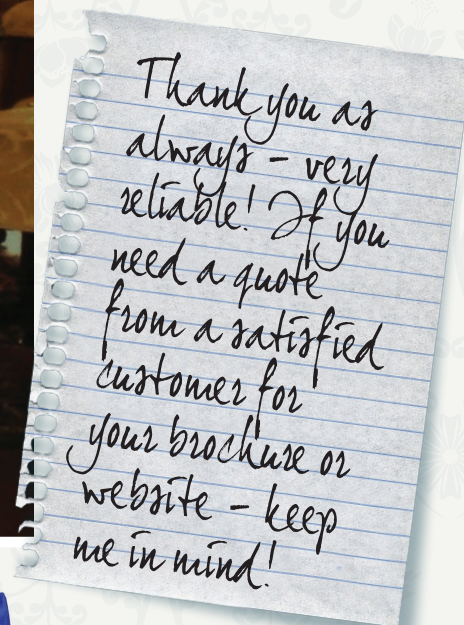 Thank you as
always – very
reliable! If you
need a quote
from a satisfied
customer for
your brochure or
website – keep
me in mind!